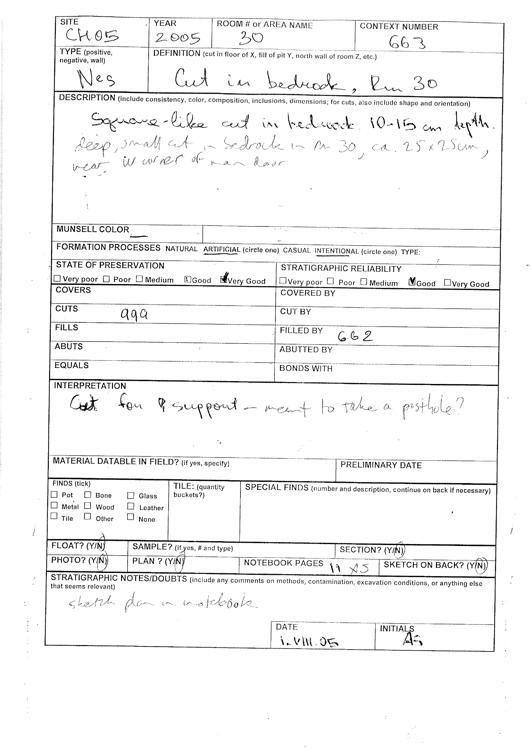 SITE
CH05
YEAR
2005
ROOM # or AREA NAME
30
CONTEXT NUMBER
663
TYPE (positive, negative, wall)
Neg
DEFINITION (cut in floor of X, fill of pit Y, north wall of room Z, etc.)
Cut in bedrock, Rm 30
DESCRIPTION (include consistency, color, composition, inclusions, dimensions; for cuts, also include shape and orientation)
Square-like cut in bedrock. 10-15 cm depth.
deep, small cut in bedrock in rm 30, ca. 25x25cm,
near W corner of main door
MUNSELL COLOR
FORMATION PROCESSES NATURAL ARTIFICIAL (circle one) CASUAL INTENTIONAL (circle one) TYPE:
STATE OF PRESERVATION
Very poor Poor Medium Good Very Good
STRATIGRAPHIC RELIABILITY
Very poor Poor Medium Good Very Good
COVERS
COVERED BY
CUTS
999
CUT BY
FILLS
FILLED BY 662
ABUTS
ABUTTED BY
EQUALS
BONDS WITH
INTERPRETATION
Cut for support - meant to take a posthole?
MATERIAL DATABLE IN FIELD? (if yes, specify)
PRELIMINARY DATE
FINDS (tick)
Pot Bone Glass
Metal Wood Leather
Tile Other None
TILE: (quantity buckets?)
SPECIAL FINDS (number and description, continue on back if necessary)
FLOAT? (Y/N)
SAMPLE? (if yes, # and type)
SECTION? (Y/N)
PHOTO? (Y/N)
PLAN ? (Y/N)
NOTEBOOK PAGES 11 AS
SKETCH ON BACK? (Y/N)
STRATIGRAPHIC NOTES/DOUBTS (include any comments on methods, contamination, excavation conditions, or anything else
that seems relevant)
sketch plan in notebook
DATE
1.VIII.05
INITIALS
AS